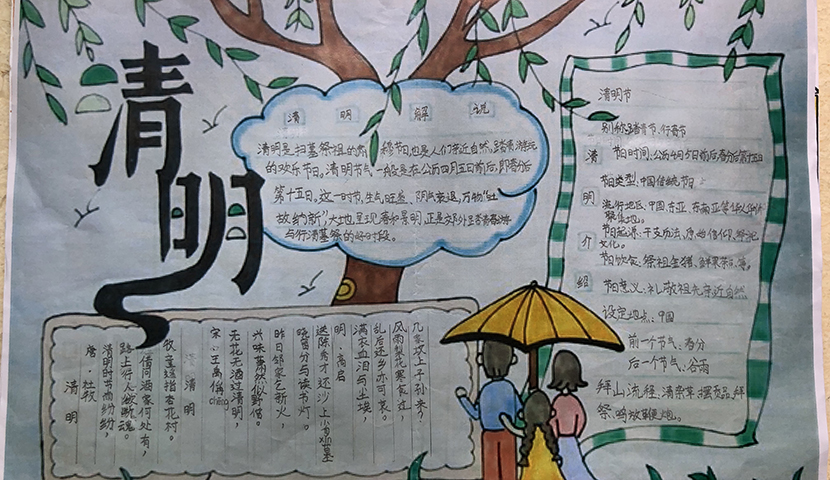 清明
清 明 解 说
清明是扫墓祭祖的肃穆节日,也是人们亲近自然、踏青游玩
的欢乐节日。清明节气一般是在公历四月五日前后,即春分后
第十五日。这一时节,生气旺盛、阴气衰退,万物“吐
故纳新”,大地呈现春和景明,正是郊外踏青春游
与行清墓祭的好时段。
清明介绍
清明节
别称:踏青节、行清节
节日时间:公历4月5日前后,春分后第十五日
节日类型:中国传统节日
流行地区:中国、东亚、东南亚等
聚集地。
节日起源:干支历法、原始信仰、祭祀
文化。
节日饮食:祭祖金猪、鲜果茶品等。
节日意义:礼敬祖先亲近自然
设定地点:中国
前一个节气:春分
后一个节气:谷雨
拜山流程:清杂草、摆贡品、拜
祭、鸣放鞭炮。
清明
唐·杜牧
清明时节雨纷纷,
路上行人欲断魂。
借问酒家何处有,
牧童遥指杏花村。
清明
宋·王禹偁 chēng
无花无酒过清明,
兴味萧然似野僧。
昨日邻家乞新火,
晓窗分与读书灯。
送陈秀才还沙上省墓
明·高启
满衣血泪与尘埃,
乱后还乡亦可哀。
风雨梨花寒食过,
几家坟上子孙来?